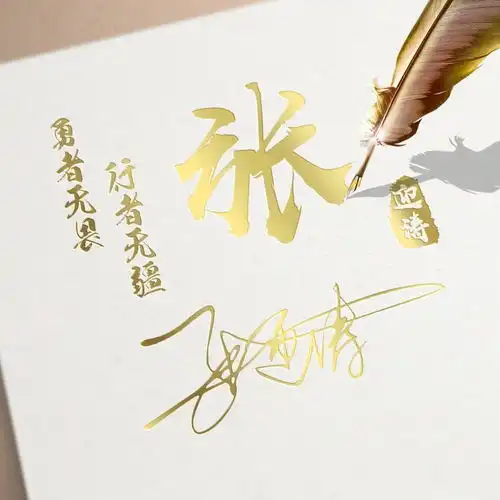 勇者无畏
行者无疆
张
迎涛